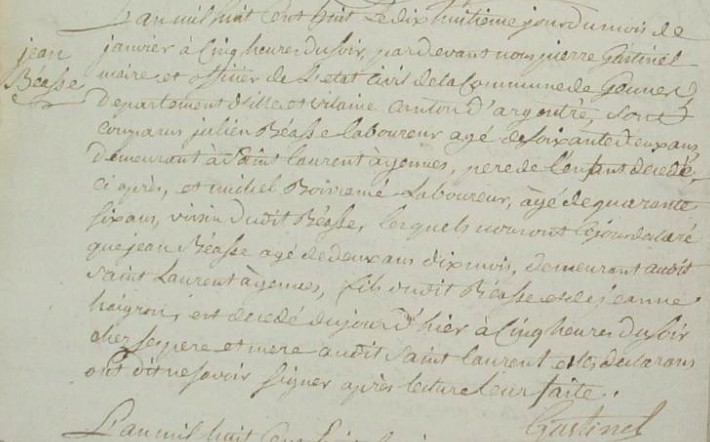 L'an mil huit cent huit Le dix huitième jour du mois de
jean
Beasse
janvier à Cinq heures du soir, pardevant nous pierre Gastinel
maire et officier de L'état Civil de la Commune de Gennes
Departement d'ille et vilaine Canton d'argentré, sont
comparus julien Béasse laboureur agé de soixante deux ans
demeurant à Saint laurent à gennes, pere de l'enfant decedé
ci après, et michel Boivramé Laboureur, âgé de quarante
six ans, voisin dudit Béasse, lesquels nous ont cejour declaré
que jean Béasse agé de deux ans dix mois, demeurant audit
saint Laurent à gennes, fils dudit Béasse et de jeanne
haigron, est decedé du jour d'hier à Cinq heures du soir
chez ses pere et mere audit saint laurent et les declarans
ont dit ne savoir signer après lecture leur faite.
Gastinel
L'an mil huit Cent huit le